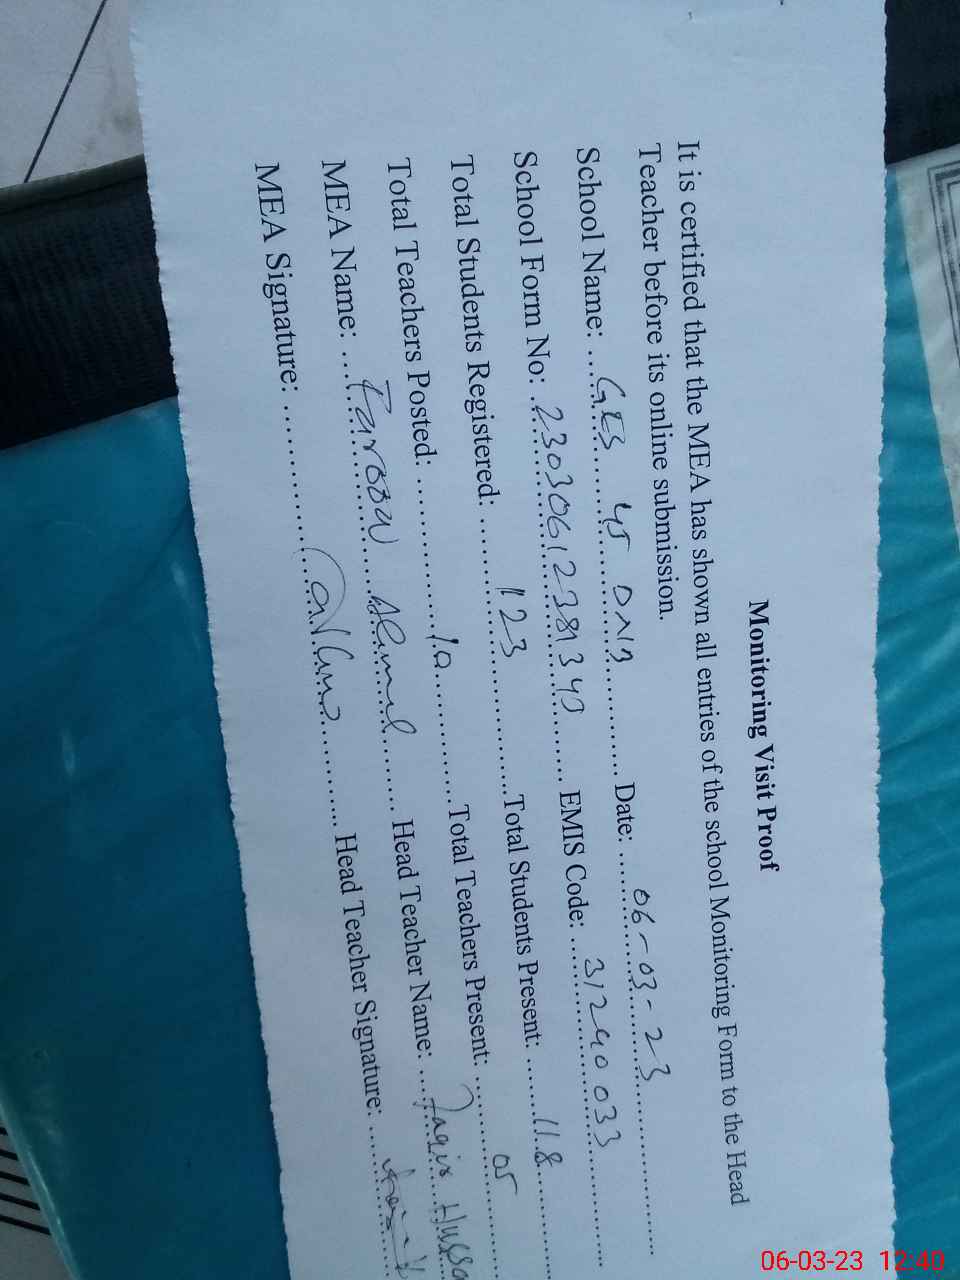 Monitoring Visit Proof
It is certified that the MEA has shown all entries of the school Monitoring Form to the Head
Teacher before its online submission.
School Name: ...GES 45 DNB... Date: ...06-03-23...
School Form No: ...23030612381343... EMIS Code: ...31240033...
Total Students Registered: ...123... Total Students Present: ...118...
Total Teachers Posted: ... Total Teachers Present: ...05
MEA Name: ...Farooq Ahmad... Head Teacher Name: ...Hussa
MEA Signature: ... Head Teacher Signature: ...
06-03-23 12:40